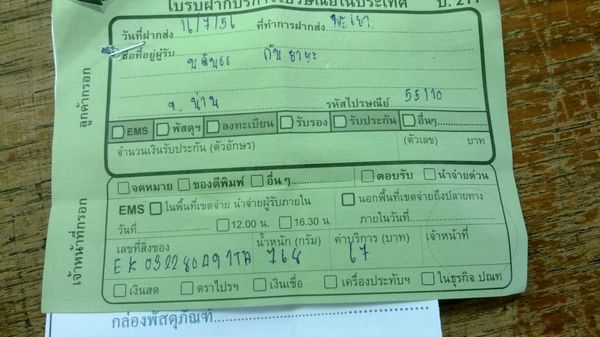 ใบรับฝากบริการไปรษณีย์ในประเทศ ป. 211
วันที่ฝากส่ง 16/7/56 ที่ทำการฝากส่ง พะเยา
ชื่อที่อยู่ผู้รับ
จ. น่าน รหัสไปรษณีย์ 55110
ลูกค้ากรอก
EMS พัสดุฯ ลงทะเบียน รับรอง รับประกัน อื่นๆ
จำนวนเงินรับประกัน (ตัวอักษร) (ตัวเลข) บาท
จดหมาย ของตีพิมพ์ อื่น ๆ ตอบรับ นำจ่ายด่วน
EMS ในพื้นที่เขตจ่าย นำจ่ายผู้รับภายใน นอกพื้นที่เขตจ่ายถึงปลายทาง
วันที่ 12.00 น. 16.30 น. ภายในวันที่
เลขที่สิ่งของ น้ำหนัก (กรัม) ค่าบริการ (บาท) เจ้าหน้าที่
67
เงินสด ตราไปรฯ เงินเชื่อ เครื่องประทับฯ ใบธุรกิจ ปณท
เจ้าหน้าที่กรอก
กล่องพัสดุภัณฑ์